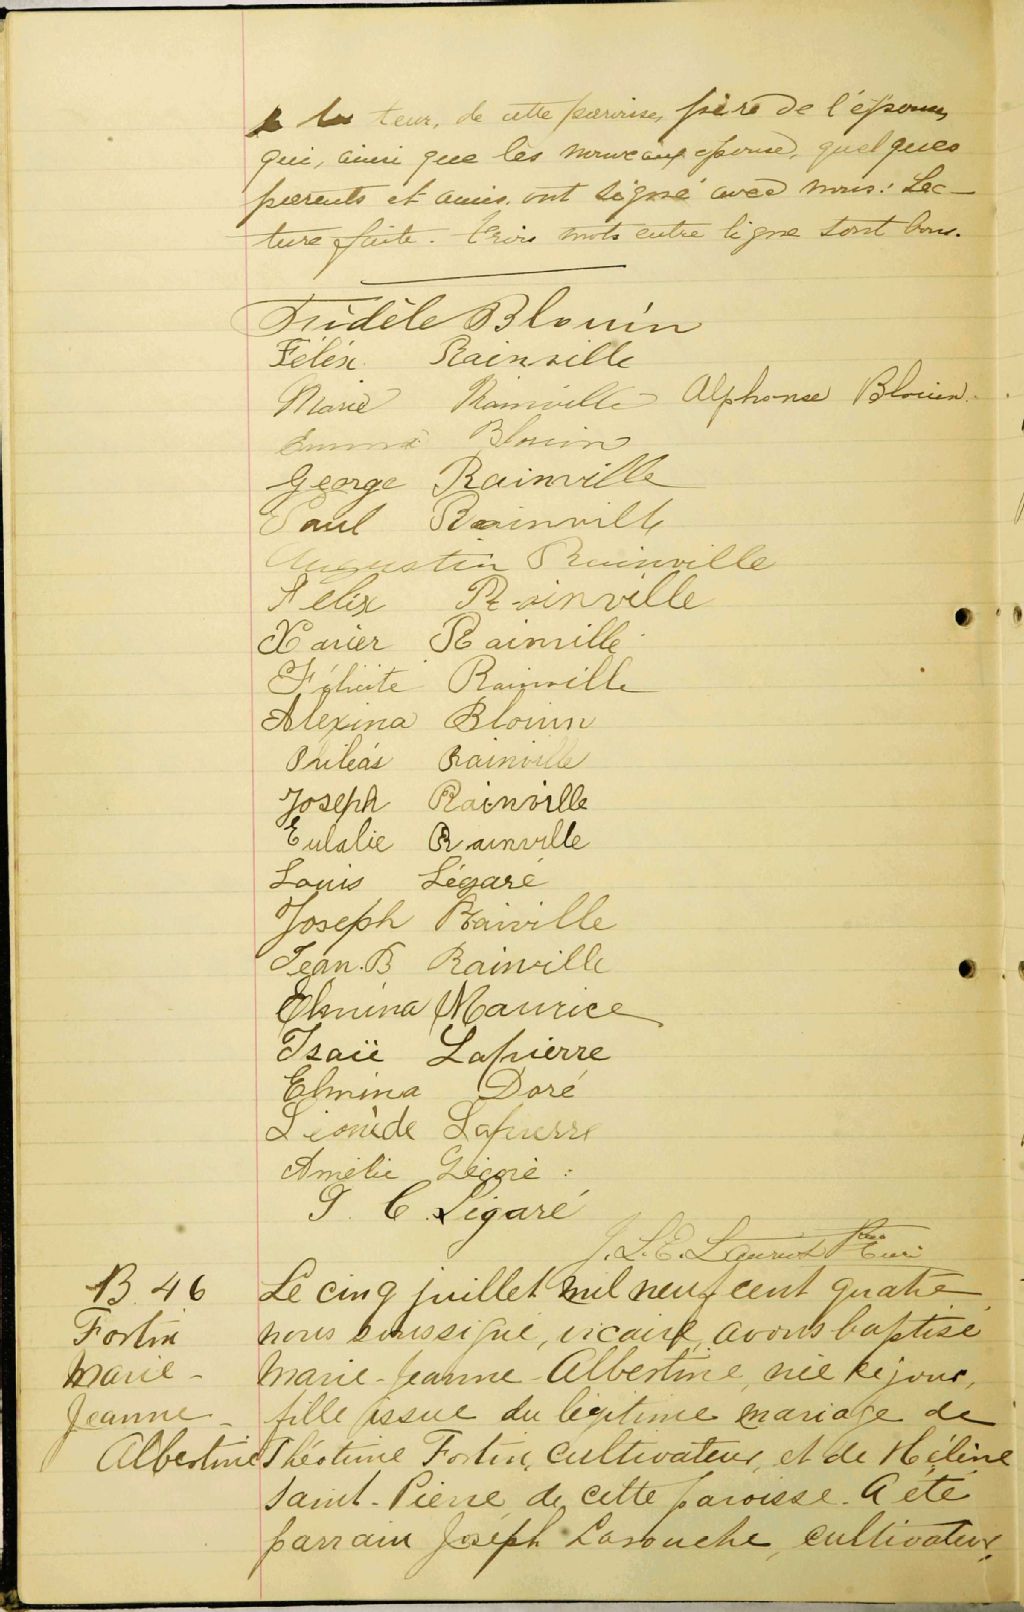 teur, de cette paroisse, père de l'épouse,
qui, ainsi que les nouveaux épouse, quelques
parents et amis, ont signé avec nous. Lec-
ture faite. Trois mots entre ligne sont bons.
Fridèle Blouin
Félix Rainville
Marie Rainville Alphonse Blouin
Emma Blouin
George Rainville
Paul Rainville
Augustin Rainville
Félix Rainville
Xavier Rainville
Félicité Rainville
Alexina Blouin
Philéas Rainville
Joseph Rainville
Eulalie Rainville
Louis Légaré
Joseph Raiville
Jean. B Rainville
Elmina Maurice
Isaïe Lapierre
Elmina Doré
Léonide Lapierre
Amélie
J. C. Légaré
J. L. E. Ptre Curé
B. 46
Fortin
Marie-
Jeanne-
Albertine
Le cinq juillet mil neuf cent quatre,
nous soussigné, vicaire, avons baptisé
Marie-Jeanne-Albertine, née ce jour,
fille issue du légitime mariage de
Théotime Fortin, cultivateur, et de Hélène
Saint-Pierre de cette paroisse. A été
parrain Joseph Larouche, cultivateur,